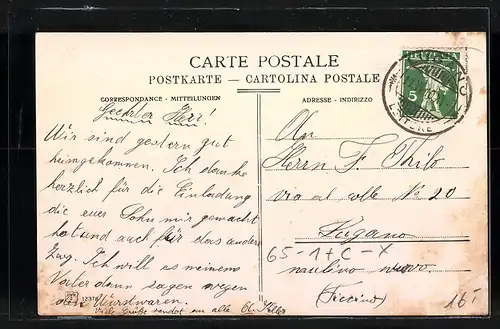 CARTE POSTALE
POSTKARTE — CARTOLINA POSTALE
CORRESPONDANCE - MITTEILUNGEN
ADRESSE - INDIRIZZO
Geehrter Herr!
Wir sind gestern gut
heimgekommen. Ich danke
herzlich für die Einladung
die euer Sohn mir gemacht
hat und auch für das andere
Zug. Ich will es meinem
Vater dann sagen wegen
den Wurstwaren.
Viele Grüße sendet an alle A. Keller
12378
HELVETIA
5
LETTERE
An
Herrn F. Thilo
via al colle No 20
Lugano
65-1+C-X
(Ticino)
16.-